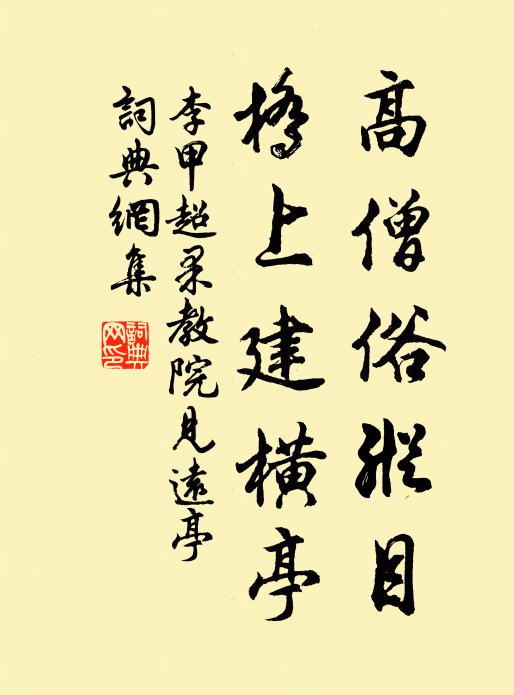 高僧俗縱目
橋上建橫亭
李甲超果教院見遠亭
詞典網集
詞典网印